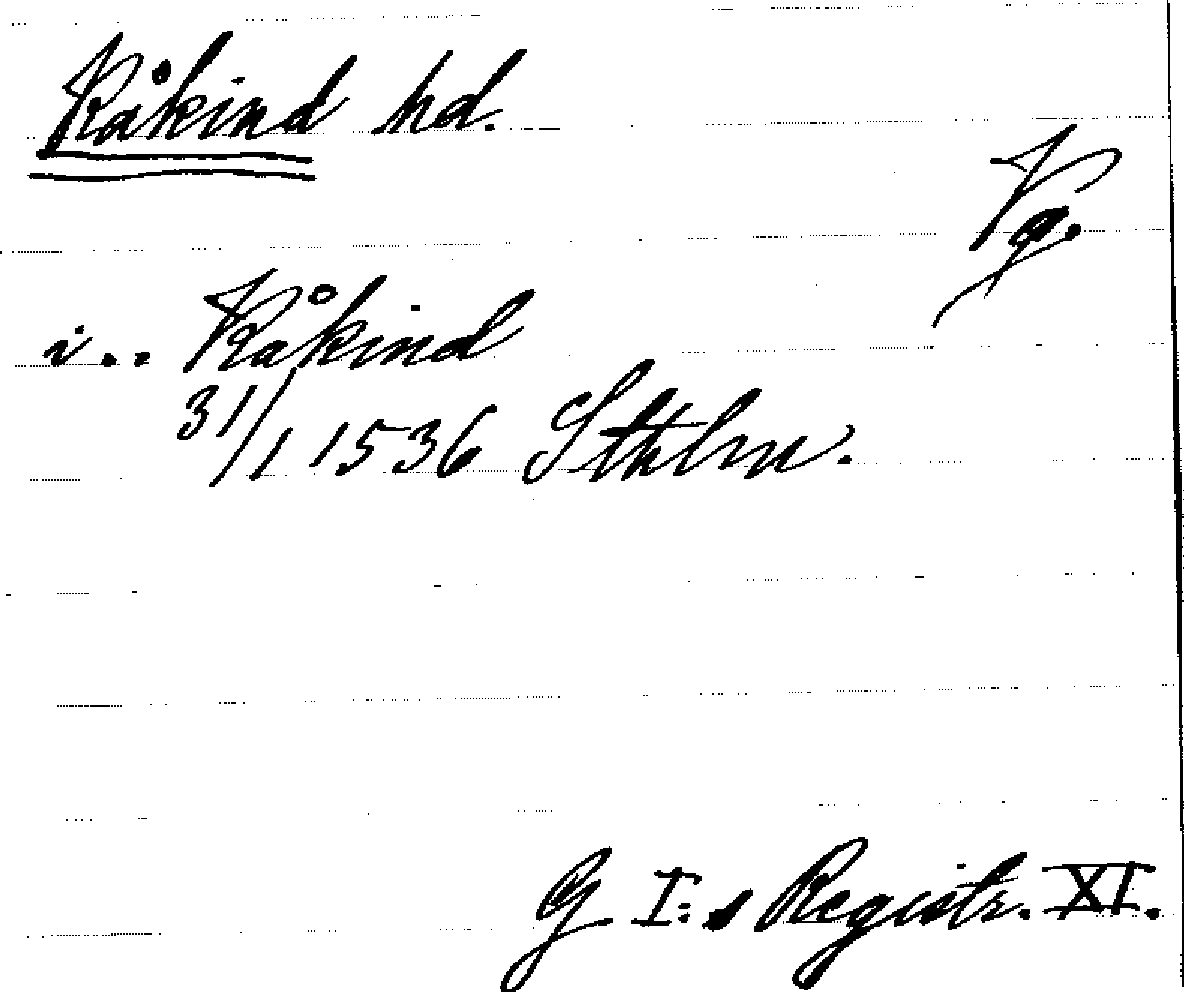 Kåkind hd.
Vg.
i.. Kåkind
31/1 1536 Sthlm.
G I:s Registr. XI.